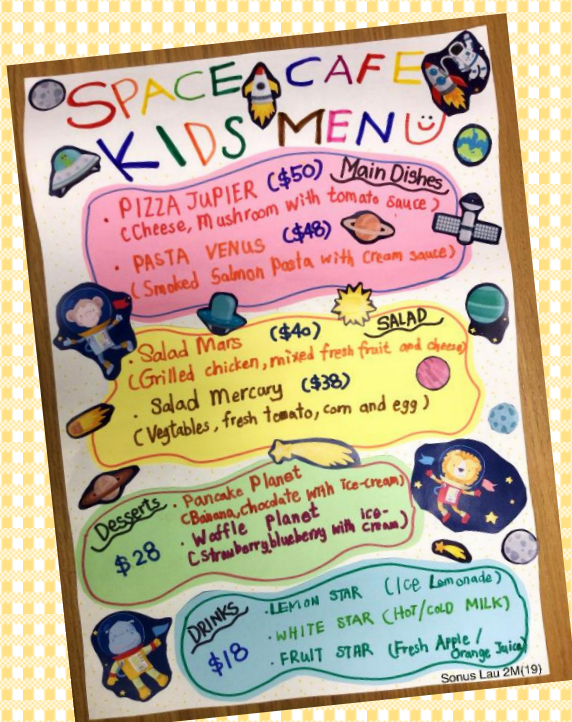 SPACE CAFE
KIDS MENU
Main Dishes
· PIZZA JUPIER ($50)
(Cheese, Mushroom with tomato sauce)
· PASTA VENUS ($48)
(Smoked Salmon Pasta with Cream sauce)
SALAD
· Salad Mars ($40)
(Grilled chicken, mixed fresh fruit and cheese)
· Salad Mercury ($38)
(Vegtables, fresh tomato, corn and egg)
Desserts
$28
· Pancake Planet
(Banana, chocolate with ice-cream)
· Waffle Planet
(Strawberry blueberry with ice-cream)
DRINKS
$18
· LEMON STAR (Ice Lemonade)
· WHITE STAR (HOT/COLD MILK)
· FRUIT STAR (Fresh Apple / Orange Juice)
Sonus Lau 2M(19)